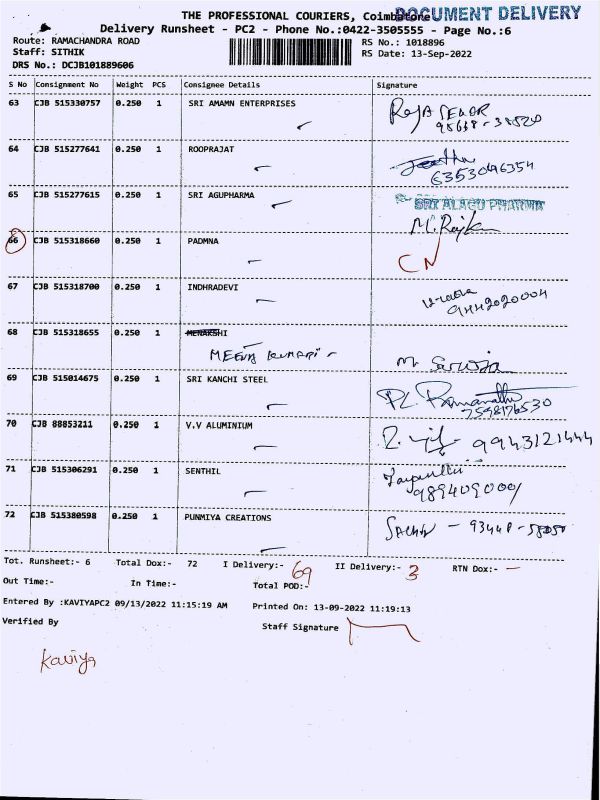 THE PROFESSIONAL COURIERS, Coimbatore DOCUMENT DELIVERY
Delivery Runsheet - PC2 - Phone No.:0422-3505555 - Page No.:6
Route: RAMACHANDRA ROAD RS No.: 1018896
Staff: SITHIK RS Date: 13-Sep-2022
DRS No.: DCJB101889606
S No Consignment No Weight PCS Consignee Details Signature
63 CJB 515330757 0.250 1 SRI AMAMN ENTERPRISES
64 CJB 515277641 0.250 1 ROOPRAJAT
6353046354
65 CJB 515277615 0.250 1 SRI AGUPHARMA SRI ALAGU PHARMA
66 CJB 515318660 0.250 1 PADMNA
CN
67 CJB 515318700 0.250 1 INDHRADEVI
9442020004
68 CJB 515318655 0.250 1 MENAKSHI
MEENA KUMARI M. Saroja
69 CJB 515014675 0.250 1 SRI KANCHI STEEL
PL. Ramanatha
7598176530
70 CJB 88853211 0.250 1 V.V ALUMINIUM
9943121444
71 CJB 515306291 0.250 1 SENTHIL
9894090001
72 CJB 515380598 0.250 1 PUNMIYA CREATIONS
Tot. Runsheet:- 6 Total Dox:- 72 I Delivery:- 69 II Delivery:- 3 RTN Dox:- —
Out Time:- In Time:- Total POD:-
Entered By :KAVIYAPC2 09/13/2022 11:15:19 AM Printed On: 13-09-2022 11:19:13
Verified By Staff Signature
Kaviya